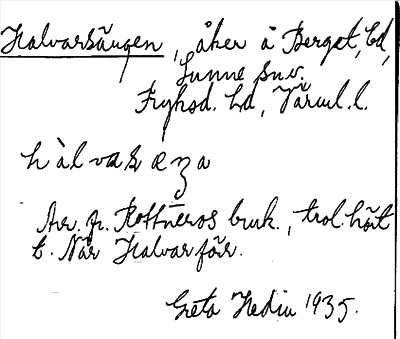 Halvarsängen, åker å Berget, Ld,
Sunne sn.
Fryksd. hd, Värml. l.
hàlvasæŋa
Avr. fr. Rottneros bruk., trol. hört
t. När Halvar förr.
Greta Hedin 1935.